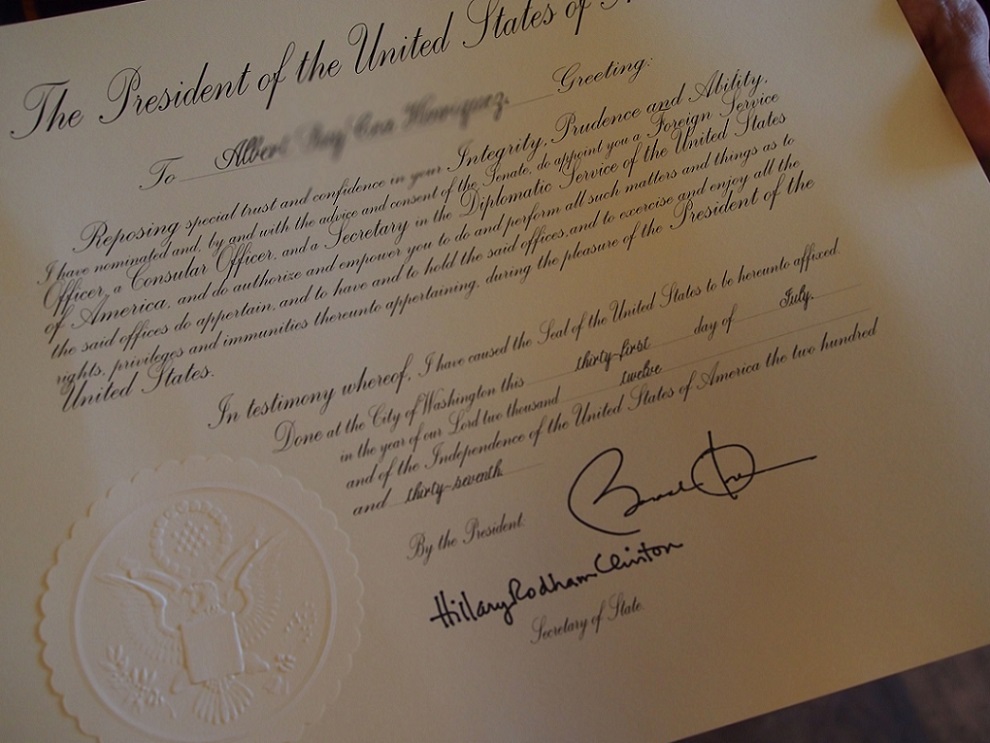 The President of the United States of
To Greeting:
Reposing special trust and confidence in your Integrity, Prudence and Ability,
I have nominated and, by and with the advice and consent of the Senate, do appoint you a Foreign Service
Officer, a Consular Officer, and a Secretary in the Diplomatic Service of the United States
of America, and do authorize and empower you to do and perform all such matters and things as to
the said offices do appertain, and to have and to hold the said offices, and to exercise and enjoy all the
rights, privileges and immunities thereunto appertaining, during the pleasure of the President of the
United States.
In testimony whereof, I have caused the Seal of the United States to be hereunto affixed.
Done at the City of Washington this thirty-first day of July,
in the year of our Lord two thousand twelve
and of the Independence of the United States of America the two hundred
and thirty-seventh
By the President:
Hillary Rodham Clinton
Secretary of State.